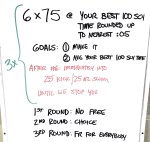 6 x 75 @ YOUR BEST 100 SCY
TIME ROUNDED UP
TO NEAREST :05
3x
GOALS: ① MAKE IT
② AVG YOUR BEST 100 SCY TIME
AFTER
IMMEDIATELY INTO
25 KICK / 25 SWIM
UNTIL WE STOP YOU
1ST ROUND: NO FREE
2ND ROUND: CHOICE
3RD ROUND: FR FOR EVERYBODY